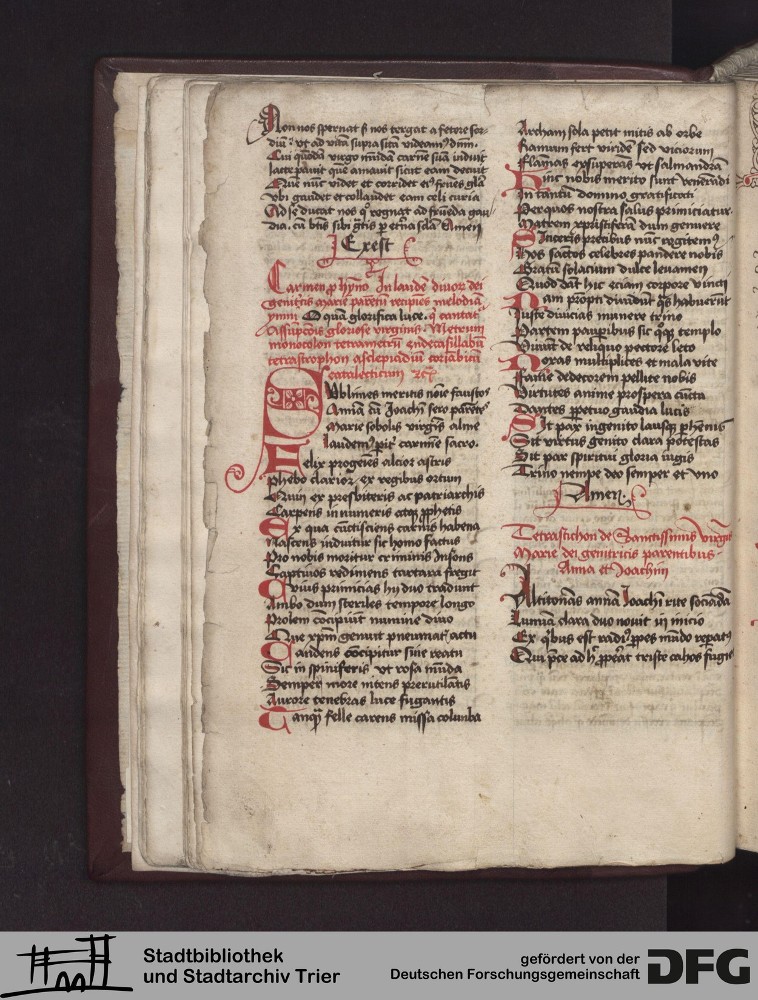 Non nos spernat s nos tergat a fetore sor-
diu ut ad vitā supra sitā videam dnm.
Cui quōdā virgo mūda carnē suā induit
lacte pavit que amavit sicut eam decuit
Que nūc videt et corridet ei frues glā
vbi gaudet et collaudet eam celi curia
Ad se ducat nos q regnat ad gau
dia. cū btis sibi grīs p etna sclā Amen
Exest
Carmen p hȳno In laudē divor dei
genitcis marie parentū recipies melodiā
ymni O quā glorifica luce. q cantat
Assumpcōis gloriose virginis. Metrum
monocolon tetrametrū endecasillabū
tetrastrophon asclepiadiū coriābicū
catalecticum
Sublimes meritis noīe faustos
Annā cū Joachī sero parētes
Marie sobolis virginis alme
laudem pit carmīe sacro.
Felix progenies alcior astris
Phebo clarior ex regibus ortum
Quin ex presbiteris ac patriarchis
Carpens in numeris atq pphetis
Ex qua cūctisciens carnis habena
Nascens induitur sic homo factus
Pro nobis moritur criminis Insons
Captivos redimens tartara fregit
Cuius primicias hii duo tradunt
Ambo dum steriles tempore longo
Prolem cōcipiūt numine divo
Que xpm genuit pneumat actu
Candens cōcipitur sine reatu
Sic in spiniferis ut rosa mūda
Semper more nitens prerutilātis
Aurore tenebras luce fugantis
Tanq felle carens missa columba
Archam sola petit mitis ab orbe
Ramum fert viridē sed viciorum
Flāmas exsuperās ut salmandrā
Hinc nobis merito sunt venerādi
In tantū domino gratificati
Per quos nostra salus primiciatur
Matrem xpistiferā dum genuere
Sinceris precibus nūc
Hos sāctos celebres pandere nobis
Gratū solacium dulce levamen
Quod dāt hic eciam corpore vincti
Nam propti dividūt qs habuerūt
Iuste divicias munere trino
Partem pauperibus sic q templo
Vivūt de reliquo pectore leto
Noxas multiplices et mala vite
Fame dedecorem pellite nobis
Virtutes anime prospera cūcta
Dantes ppetuo gaudia lucis
Sit pax ingenito lausq phennis
Sit virtus genito clara potestas
Sit par spiritui gloria iugis
Trino nempe deo semper et uno
Amen
Tetrastichon de Sanctissimis virgīs
Marie dei genitricis parentibus
Anna et Joachim
Altitonās annā Joachī rite sociādā
Lumīa clara duo novit in inicio
Ex qbus est
Qui triste cahos
Stadtbibliothek
und Stadtarchiv Trier
gefördert von der
Deutschen Forschungsgemeinschaft
DFG